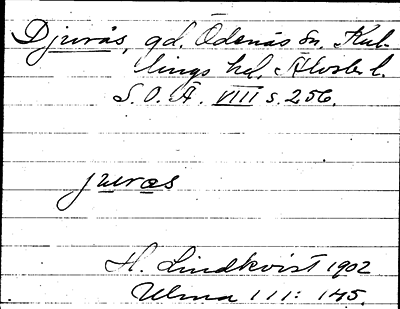 Djurås, gd. Ödenäs sn. Kul-
lings hd, Älvsb. l.
S. O. Ä. VIII s. 256.
juras
H. Lindkvist 1902
Ulma 111: 145.